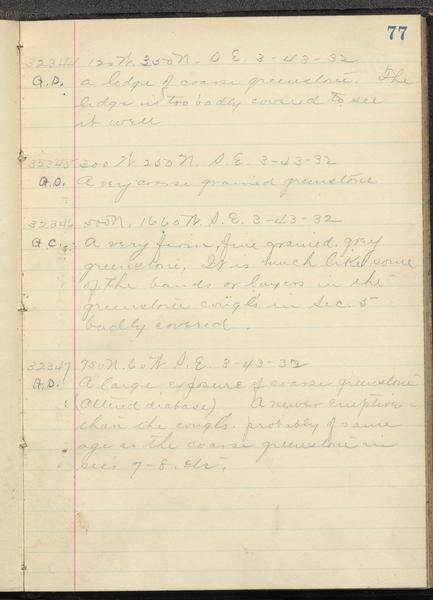 77
32344 120W. 350N. S.E. 3-43-32
G.D. a ledge of coarse greenstone. The
ledge is too badly covered to see
it well
32345 300W 250N. S.E. 3-43-32
G.D. A very coarse grained greenstone
32346 500N. 1660W S.E. 3-43-32
G.C. A very firm, fine grained, grey
greenstone, It is much like some
of the bands or layers in the
greenstone congl's in Sec. 5
badly covered.
32347 750N. 60W S.E. 3-43-32
G.D. A large exposure of coarse greenstone
(Altered diabase) A newer eruptive
than the congl's. probably of same
age as the coarse greenstone in
sec's 7-8. etc.